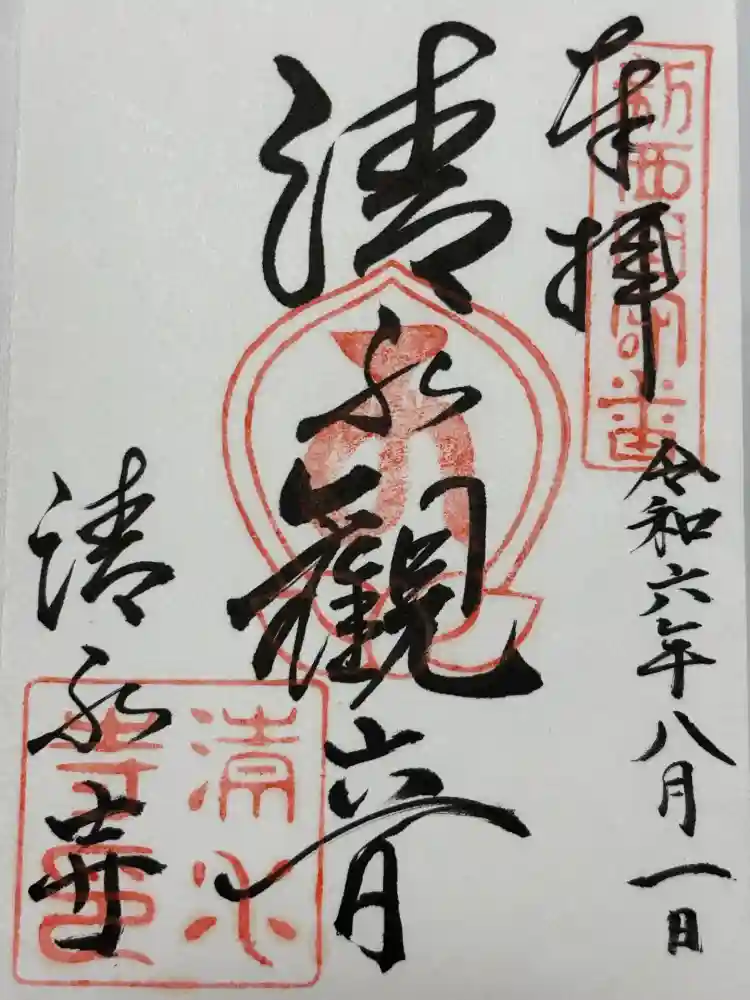 新西国客番
奉拝
令和六年八月一日
清水觀音
清水寺
清水寺印